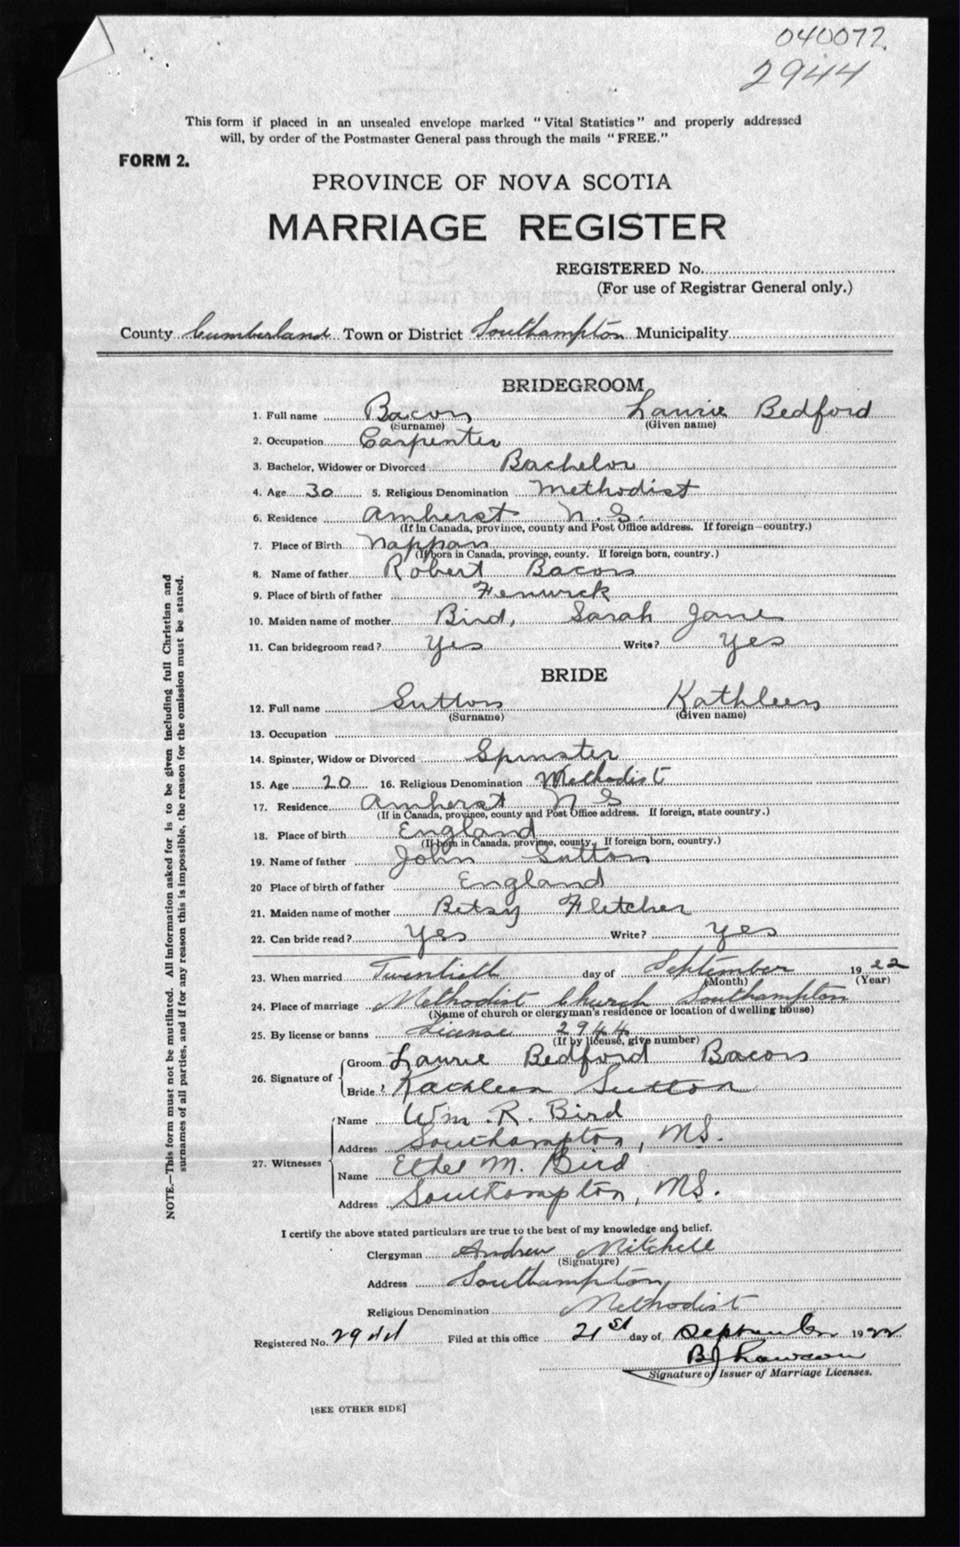 040072
2944
This form if placed in an unsealed envelope marked "Vital Statistics" and properly addressed
will, by order of the Postmaster General pass through the mails "FREE."
FORM 2.
PROVINCE OF NOVA SCOTIA
MARRIAGE REGISTER
REGISTERED No.
(For use of Registrar General only.)
County Cumberland Town or District Southampton Municipality
BRIDEGROOM
1. Full name Bacon Laurie Bedford
(Surname) (Given name)
2. Occupation Carpenter
3. Bachelor, Widower or Divorced Bachelor
4. Age 30 5. Religious Denomination Methodist
6. Residence Amherst N.S.
(If in Canada, province, county and Post Office address. If foreign—country.)
7. Place of Birth Nappan
(If born in Canada, province, county. If foreign born, country.)
8. Name of father Robert Bacon
9. Place of birth of father Fenwick
10. Maiden name of mother Bird, Sarah Jane
11. Can bridegroom read? Yes Write? Yes
BRIDE
12. Full name Sutton Kathleen
(Surname) (Given name)
13. Occupation
14. Spinster, Widow or Divorced Spinster
15. Age 20 16. Religious Denomination Methodist
17. Residence Amherst N S
(If in Canada, province, county and Post Office address. If foreign, state country.)
18. Place of birth England
(If born in Canada, province, county. If foreign born, country.)
19. Name of father John Sutton
20 Place of birth of father England
21. Maiden name of mother Betsy Fletcher
22. Can bride read? Yes Write? Yes
23. When married Twentieth day of September 1922
(Month) (Year)
24. Place of marriage Methodist Church Southampton
(Name of church or clergyman's residence or location of dwelling house)
25. By license or banns License 2944
(If by license, give number)
26. Signature of Groom Laurie Bedford Bacon
Bride Kathleen Sutton
27. Witnesses Name Wm. R. Bird
Address Southampton, N.S.
Name Ethel M. Bird
Address Southampton, N.S.
I certify the above stated particulars are true to the best of my knowledge and belief.
Clergyman Andrew Mitchell
(Signature)
Address Southampton,
Religious Denomination Methodist
Registered No. 2944 Filed at this office 21st day of September 1922
B J Lawson
Signature of Issuer of Marriage Licenses.
[SEE OTHER SIDE]
NOTE.—This form must not be mutilated. All information asked for is to be given including full Christian and
surnames of all parties, and if for any reason this is impossible, the reason for the omission must be stated.